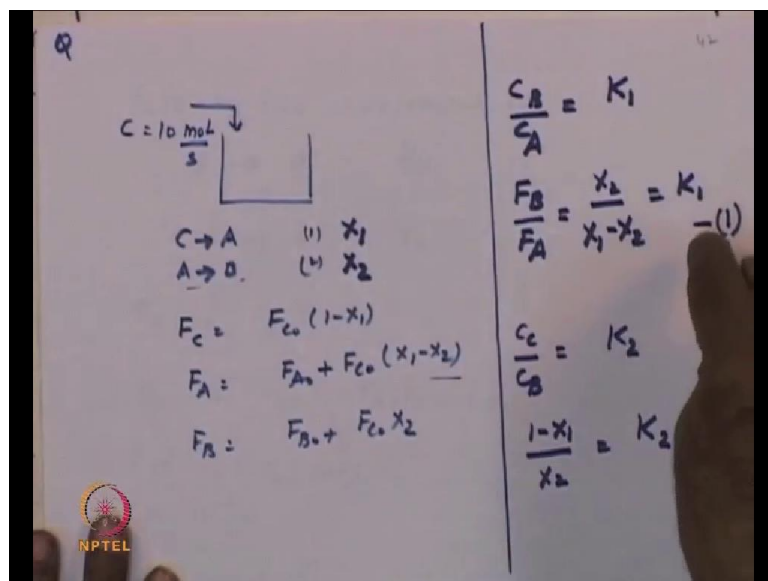 Q
42
C = 10 mol/s
C → A (1) X₁
A → B. (2) X₂
F_C = F_C₀ (1-X₁)
F_A = F_A₀ + F_C₀ (X₁-X₂)
F_B = F_B₀ + F_C₀ X₂
C_B/C_A = K₁
F_B/F_A = X₂/(X₁-X₂) = K₁ -(1)
C_C/C_B = K₂
(1-X₁)/X₂ = K₂
NPTEL